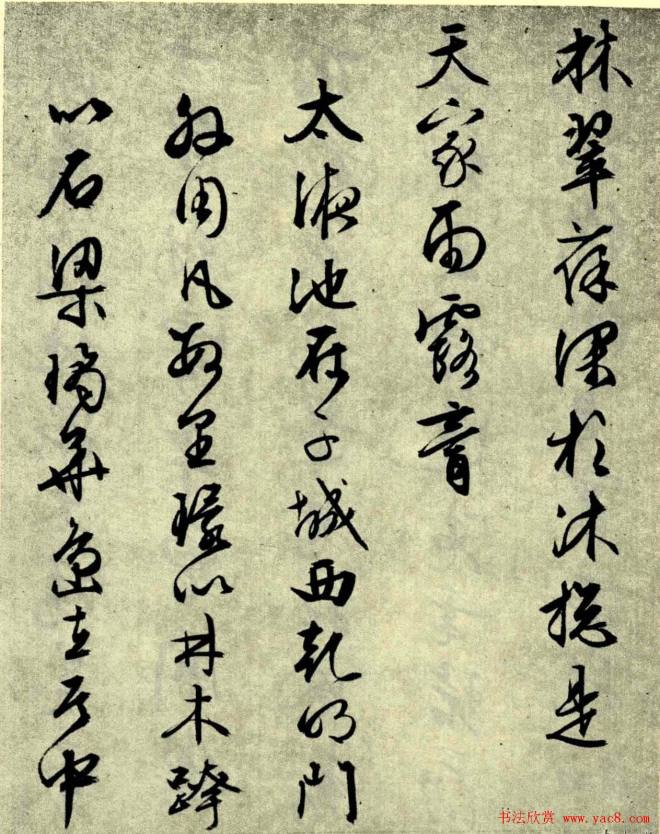 林翠葆深於沐總是
天家雨露膏
太液池在子城西乾明門
外周凡數里環以卉木跨
以石梁瓊華島在其中
书法欣赏 www.yac8.com